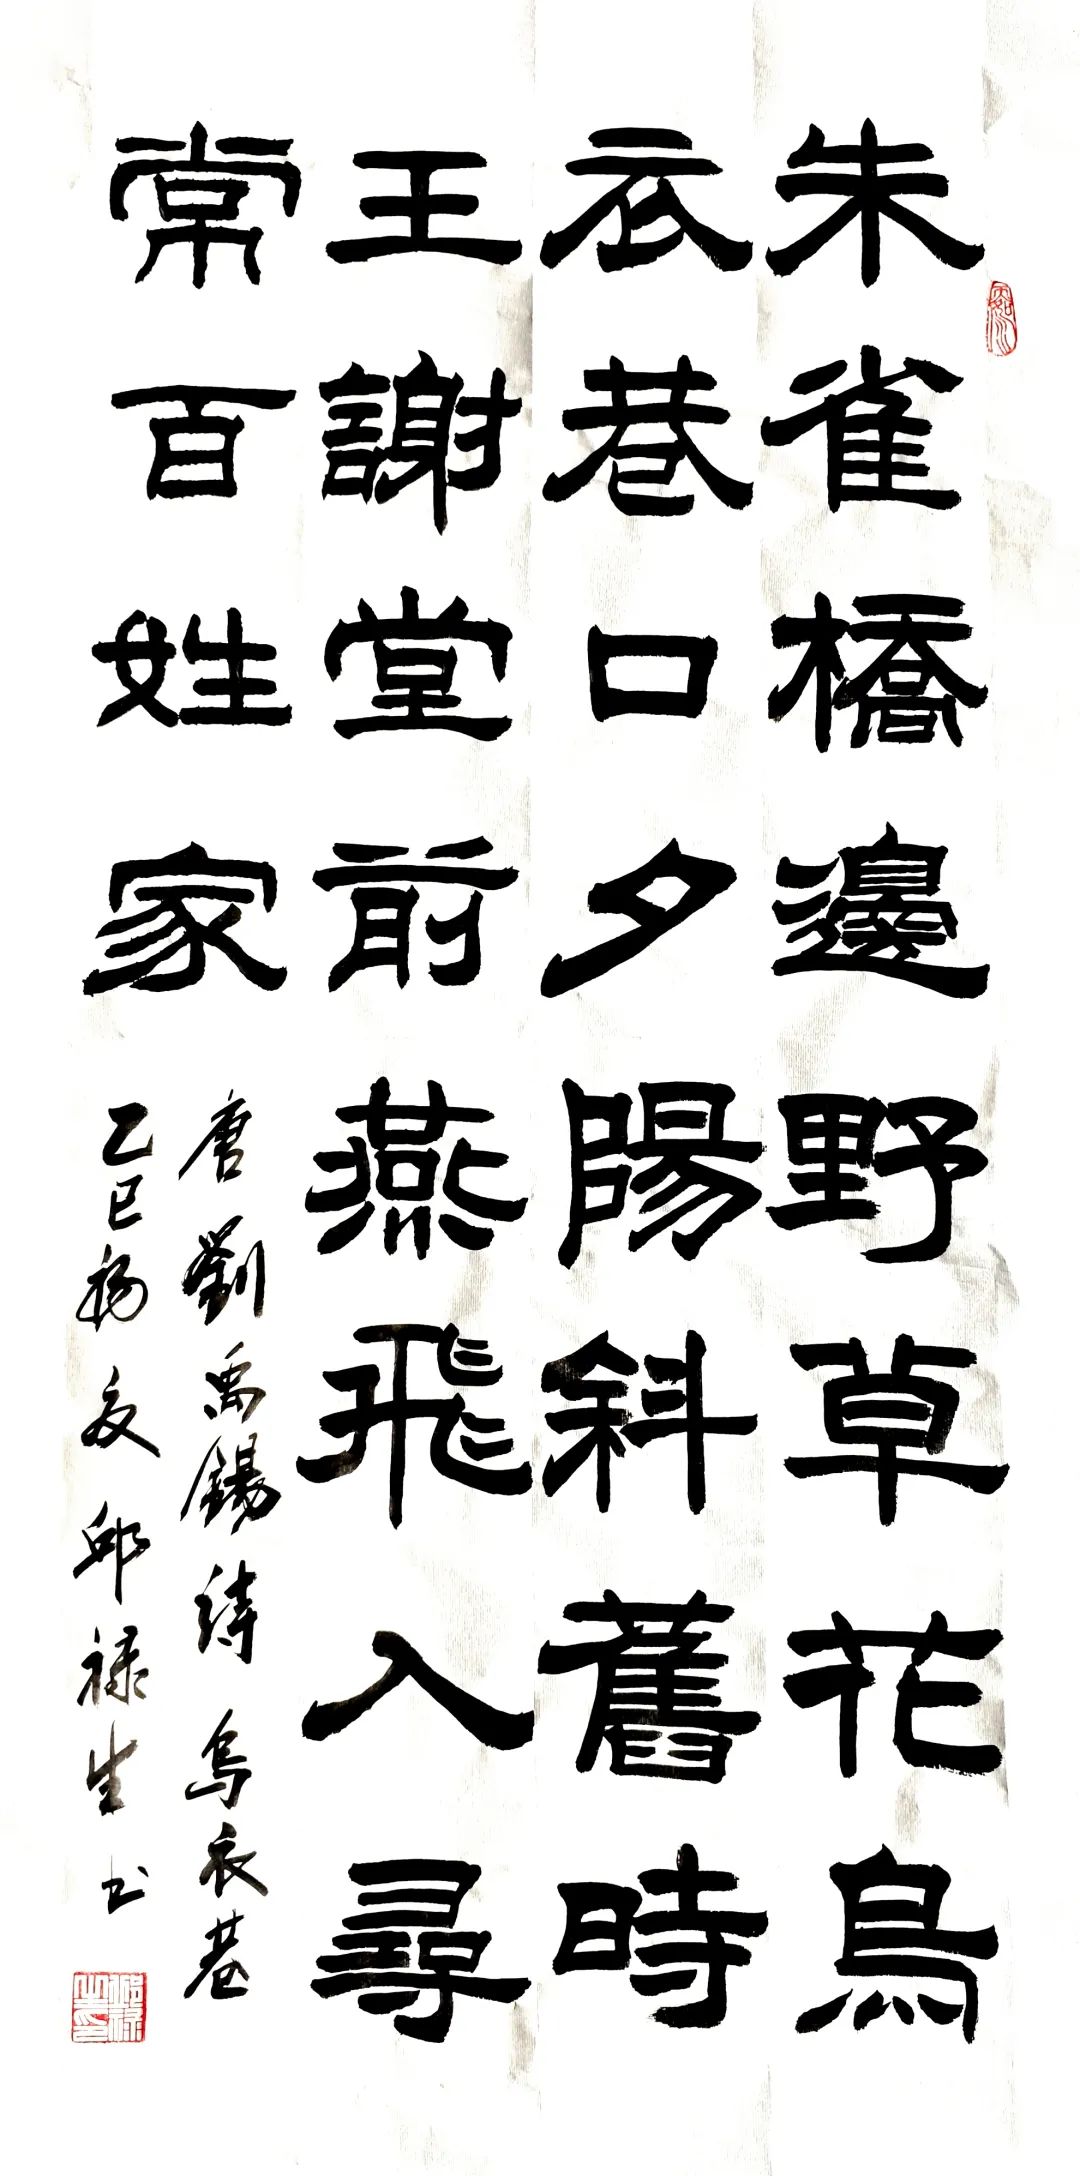 朱雀橋邊野草花鳥
衣巷口夕陽斜舊時
王謝堂前燕飛入尋
常百姓家
唐劉禹錫詩烏衣巷
乙巳初夏邱禄生书